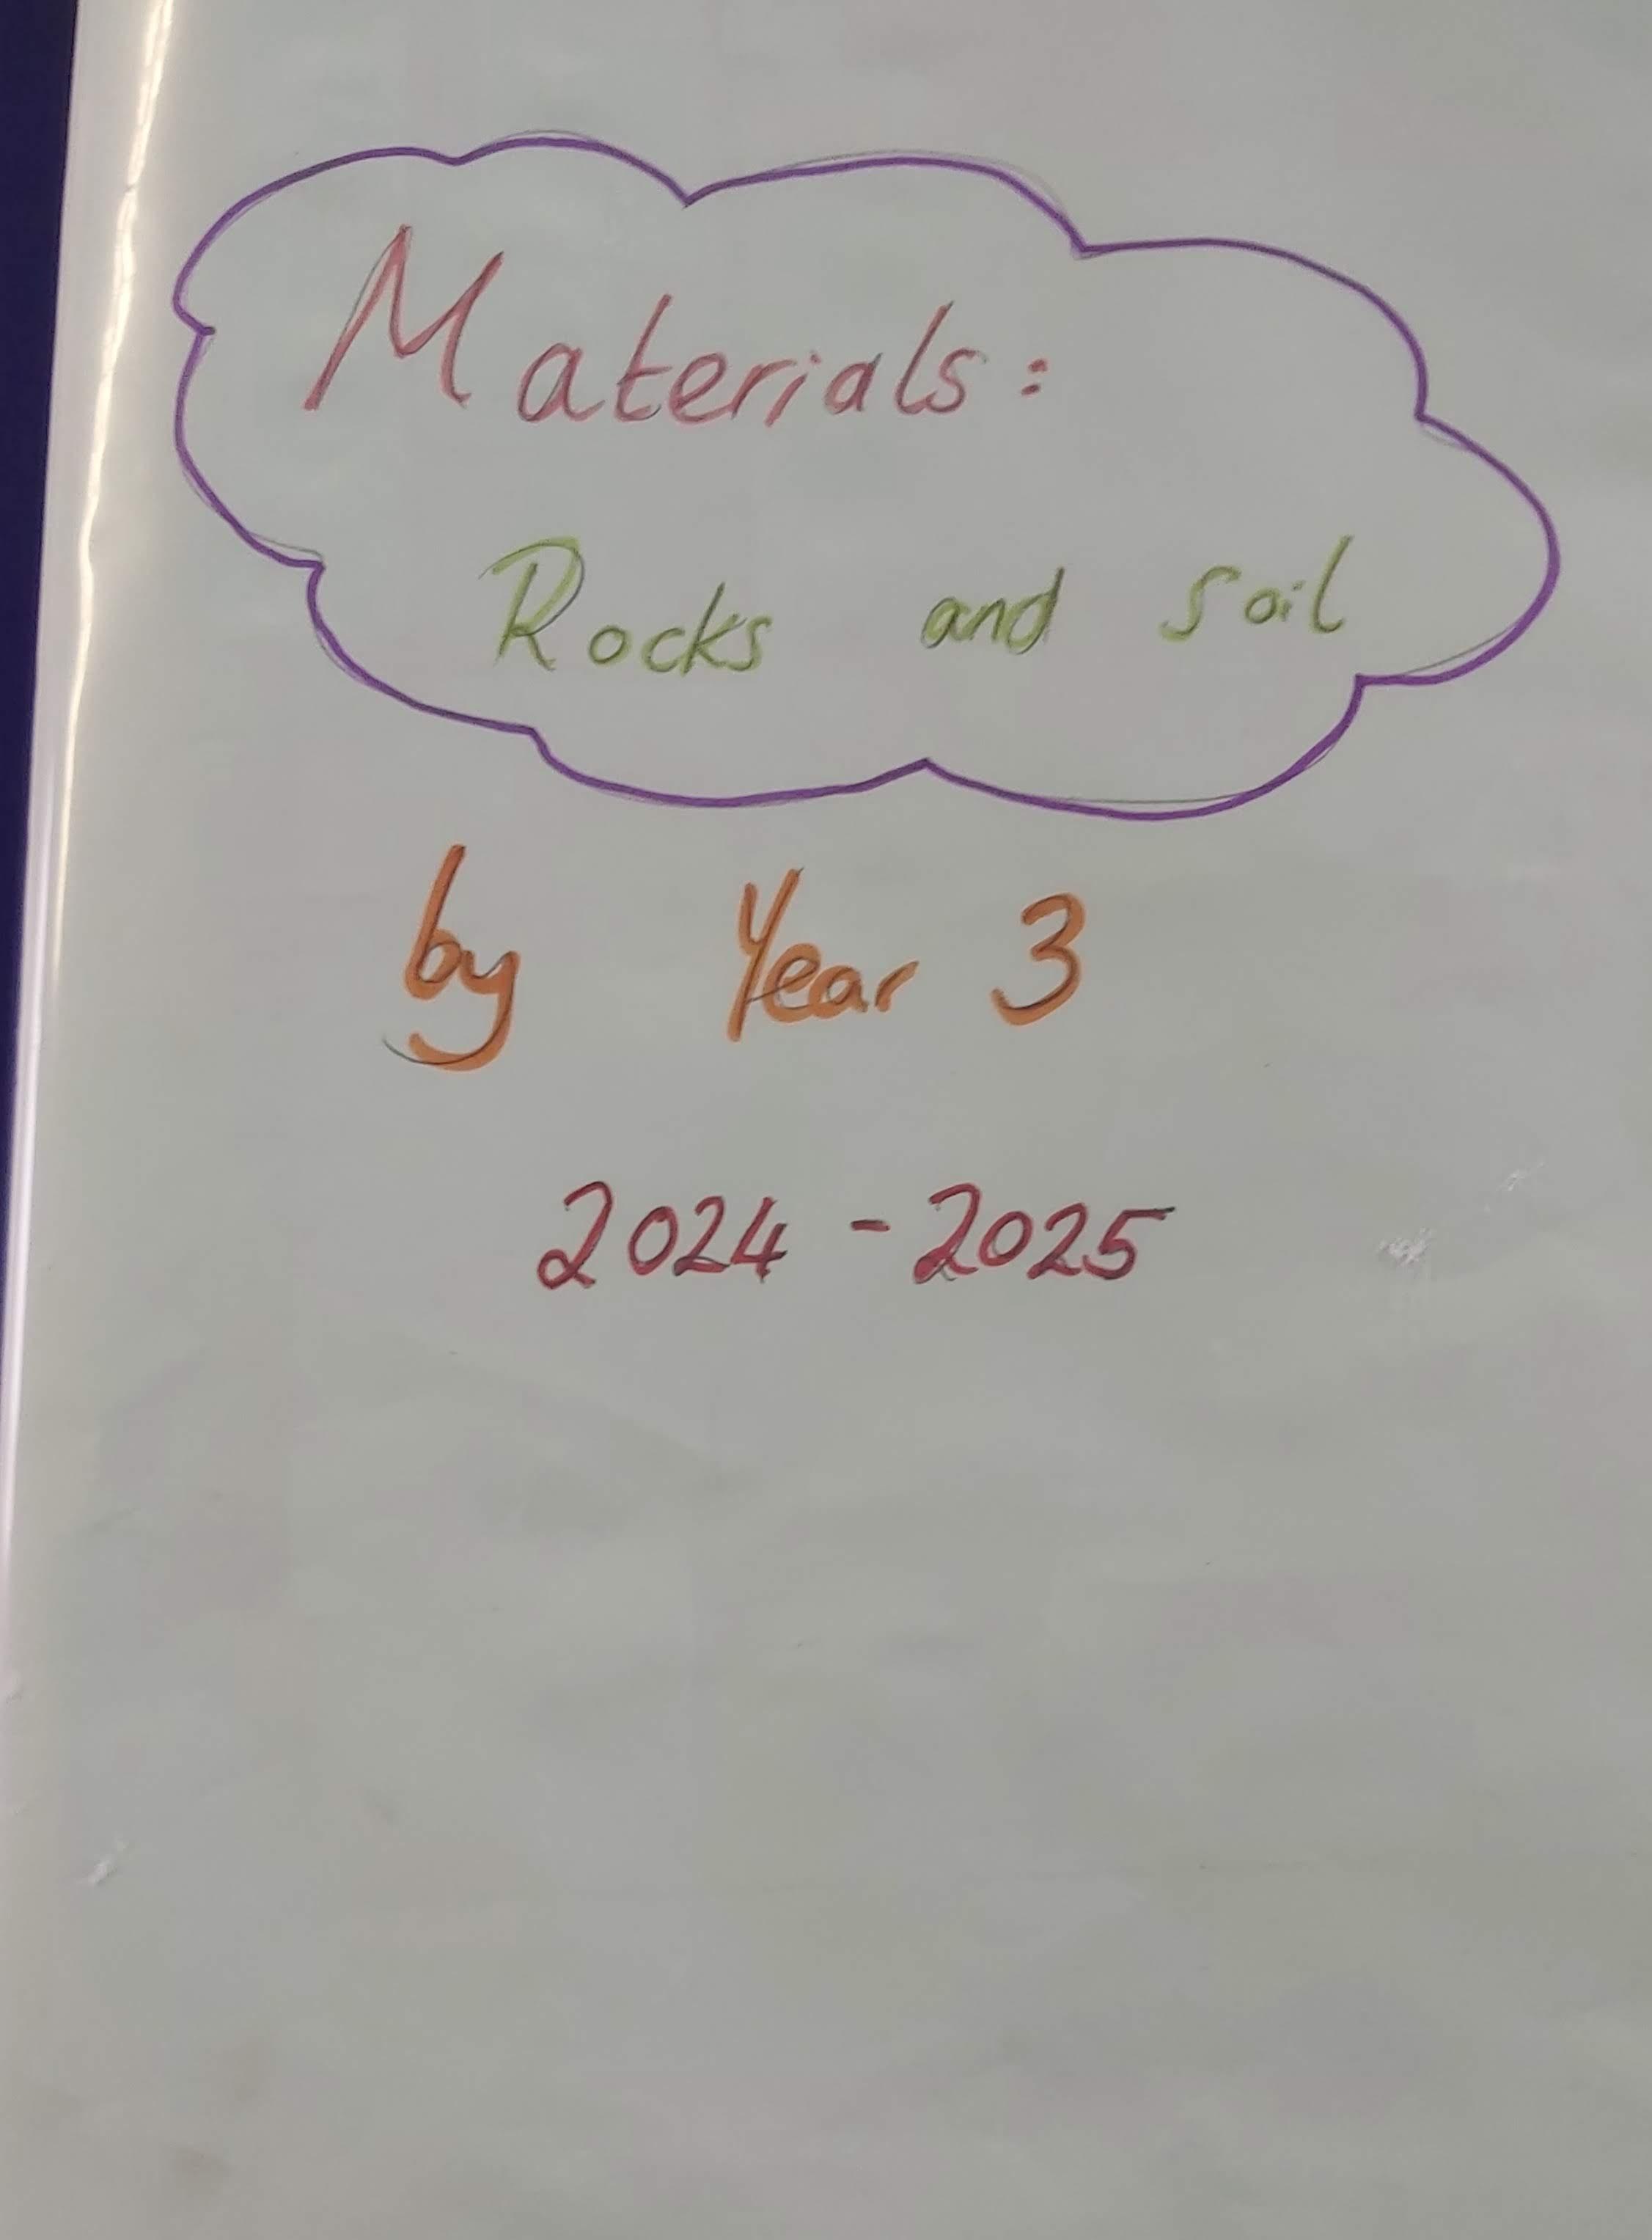 Materials:
Rocks and soil
by Year 3
2024 - 2025